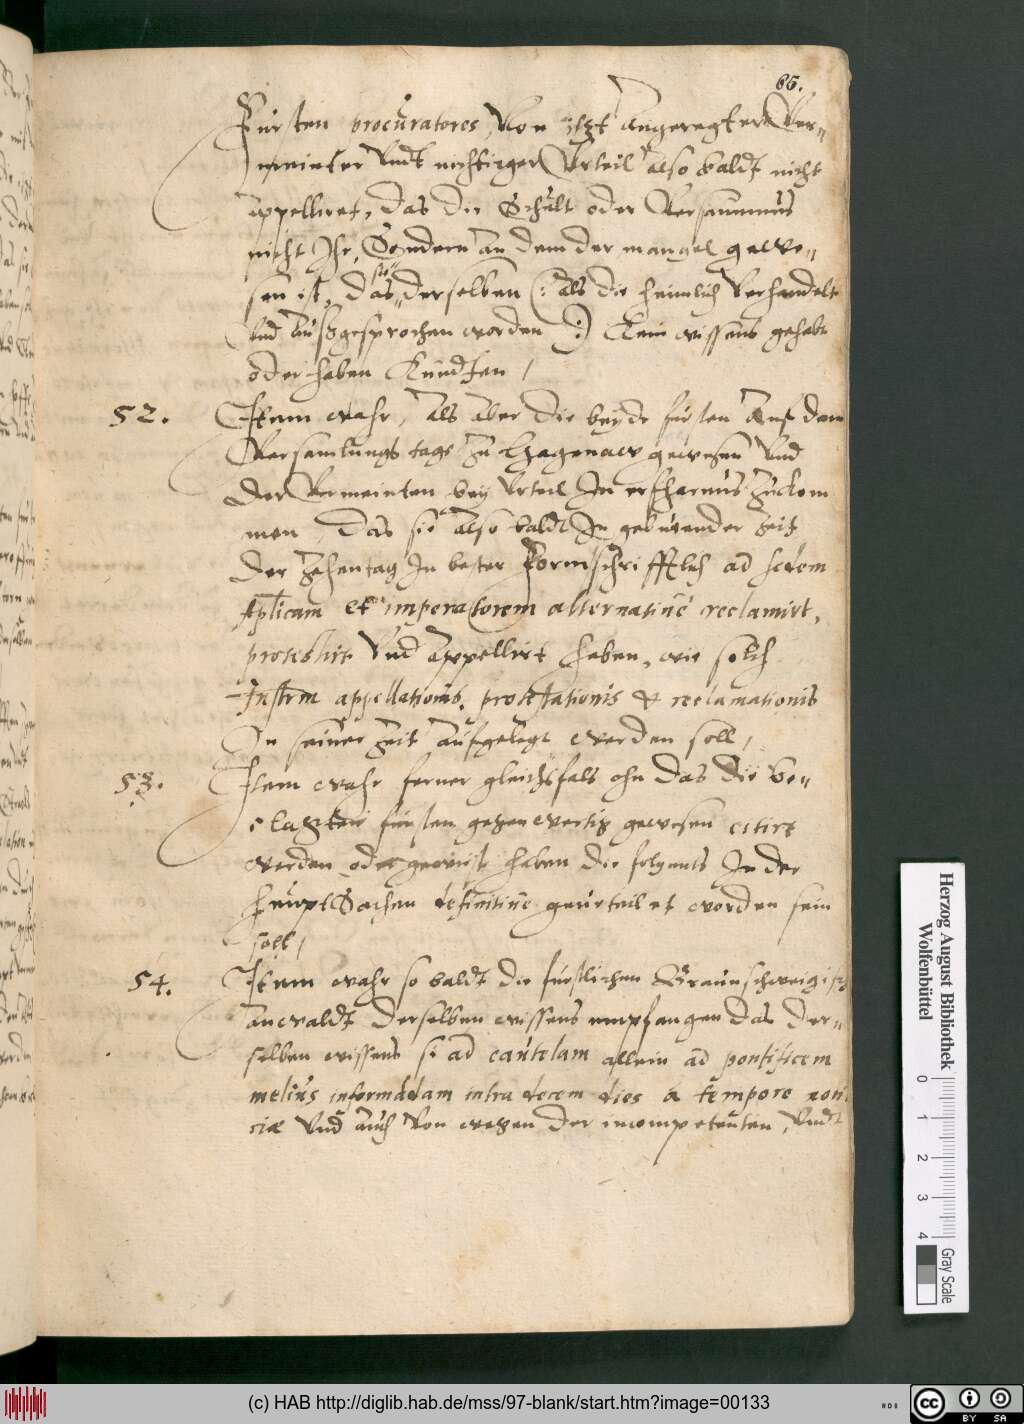 65.
Fürsten procuratores, Von itzt Angeregter Ver=
meinter Vndt nichtiger Vrteil also baldt nicht
appelliret, das die Schult oder Versaumnus
nicht Ihr, Sondern an dem der mangel gewe=
sen ist, das sie derselben (: als die heimlich Verhandelt
Vnd außgesprochen worden :) Kein wissens gehabt
oder haben Kundten /
52. Item wahr, als aber die beyde fürsten Auf dem
Versamlungs tage zu Hagenaw gewesen Vnd
der Vermeinten bey Vrteil In erfharnus zukom
men, Das sie also baldt In geburender Zeit
der Zehentag In bester Form schrifftlich ad sedem
Aplicam et imperatorem alternatiue reclamirt,
protestirt Vnd appellirt haben, wie solch
Instrm appellationis, protestationis & reclamationis
In seiner Zeit aufgelegt werden soll /
53. Item wahr ferner gleichsfals ohn das die be=
clagten fürsten gegenwertig gewesen citirt
werden oder gewust haben die folgents In der
heuptSachen definitiue geurteilet worden sein
soll /
54. Item wahr so baldt die fürstlichen Braunschweigisch
anwaldt derselben wissens empfangen das der=
selben wissens si ad cautelam allein ad pontificem
melius informandam intra decem dies a tempore noti
ciæ Vnd auch Von wegen der incompetenten, Vndt
Herzog August Bibliothek
Wolfenbüttel
0 1 2 3 4
Gray Scale
(c) HAB http://diglib.hab.de/mss/97-blank/start.htm?image=00133
cc BY SA